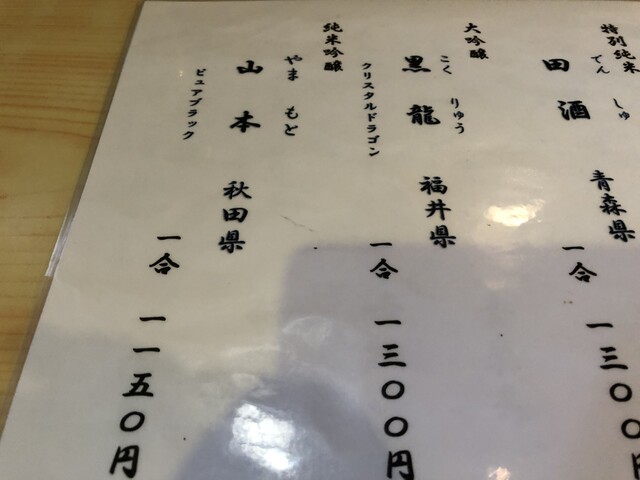 特別純米
でん しゅ
田酒 青森県
一合 一三〇〇円
大吟醸
こく りゅう
黒龍 福井県
クリスタルドラゴン
一合 一三〇〇円
純米吟醸
やま もと
山本 秋田県
ピュアブラック
一合 一一五〇円